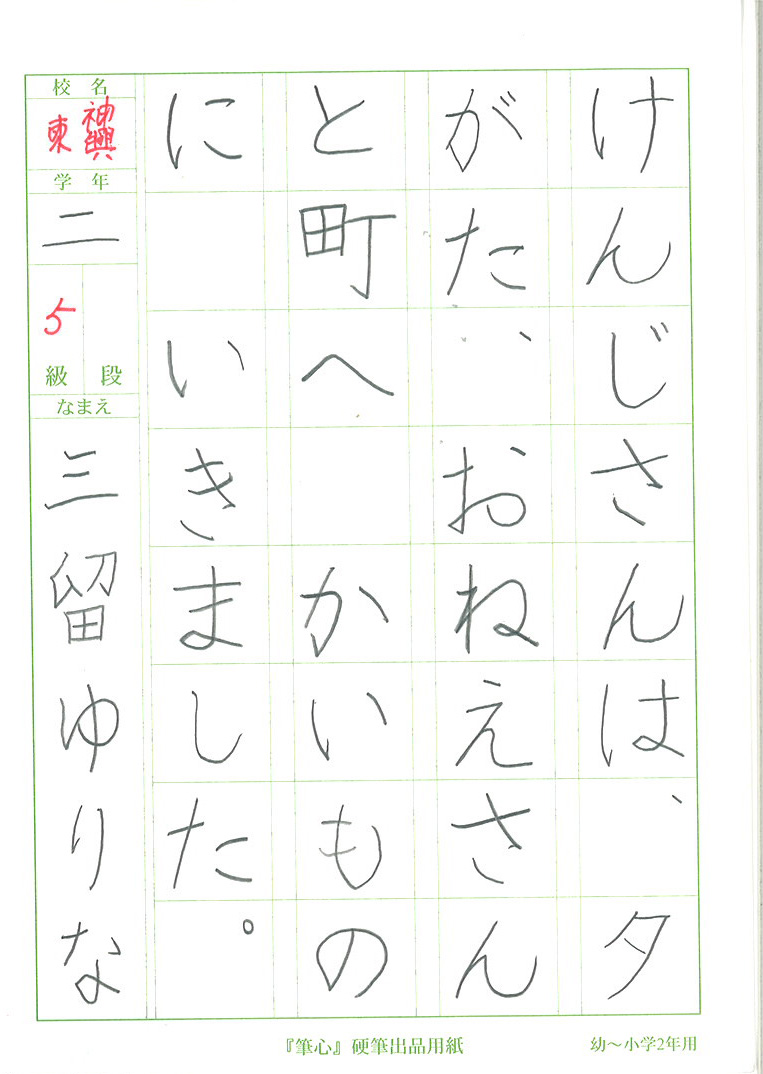 けんじさんは、夕
がた、おねえさん
と町へ かいもの
に いきました。
校名
神興東
学年
二
5
級 段
なまえ
三留ゆりな
『筆心』硬筆出品用紙
幼～小学2年用